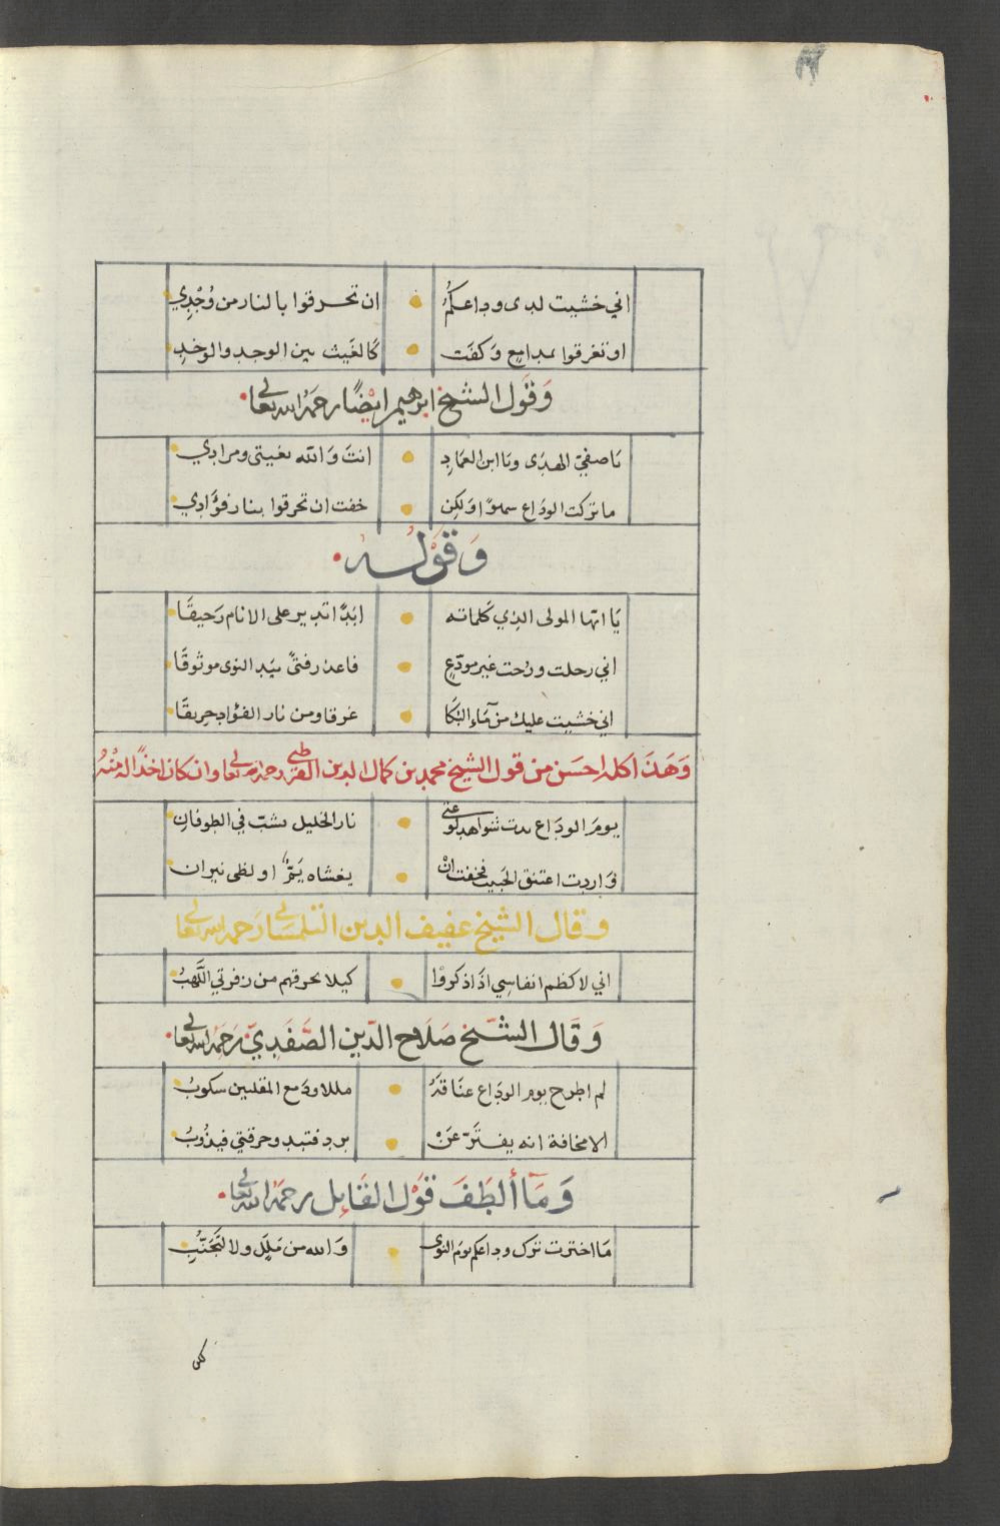 اني خشيت لدى وداعكمُ ان تحرقوا بالنار من وُجْدِي
او تغرقوا بمدامِع وَكَفَت كَالغَيث بين الوجد والوخدِ
وَقَول الشيخ ابرهيم ايْضًا رحمَهُ الله تعالى
يَا صفيّ الهدَى ويَا ابن العمَادِ انتَ وَالله بغيتي ومرادِي
ما تركت الودَاع سهوًا وَلكِن خفت ان تحرقوا بنار فؤَادِي
وَقَوْلُه
يَا ايّها المولى الذِي كلماته ابَدًا تدير على الانام رَحيقَا
اني رحلت ورُحت غير مودّعٍ فاعذر فتىً بيَد النوى موثوقَا
اني خشيت عليك من مَاء البُكَا غرقا ومن نار الفؤاد حريقَا
وَهَذَا كله احسَن من قول الشيخ محمد بن كمال الدين القرطبي رحمه الله تعالى وان كان اخذًا له مِنْهُ
يومَ الودَاع بدت شواهد لوعتي نار الخليل تشبّ في الطوفانِ
وَاردت اعتنق الحَبيب فخفت انْ يغشاه يَمٌّ او لظى نيران
وقال الشيخ عفيف الدين التلمسَاني رَحمه الله تعالى
اني لاكظم انفاسِي اذَا ذكروا كيلا يحرقهم من زفرتي اللَّهبُ
وَقَال الشيّخ صَلَاح الدّين الصَّفَدِيّ رَحمَهُ الله تعالى
لم اطرح يوم الودَاع عنَاقَهُ مللا ودَمع المقلتين سكوبُ
الا مخافة انه يفترّ عَنْ بردٍ فتبد وحرقتي فيذُوبُ
وَمَا أَلطَفَ قَوْل القَايل رحمَهُ الله تعالى
مَا اخترت ترك وداعكم يومَ النوى وَالله من مَلَلٍ ولا لتَجَنّبِ